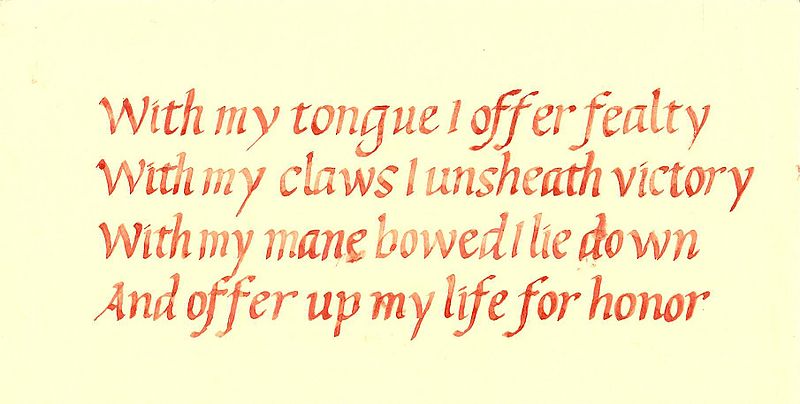 With my tongue I offer fealty
With my claws I unsheath victory
With my mane bowed I lie down
And offer up my life for honor